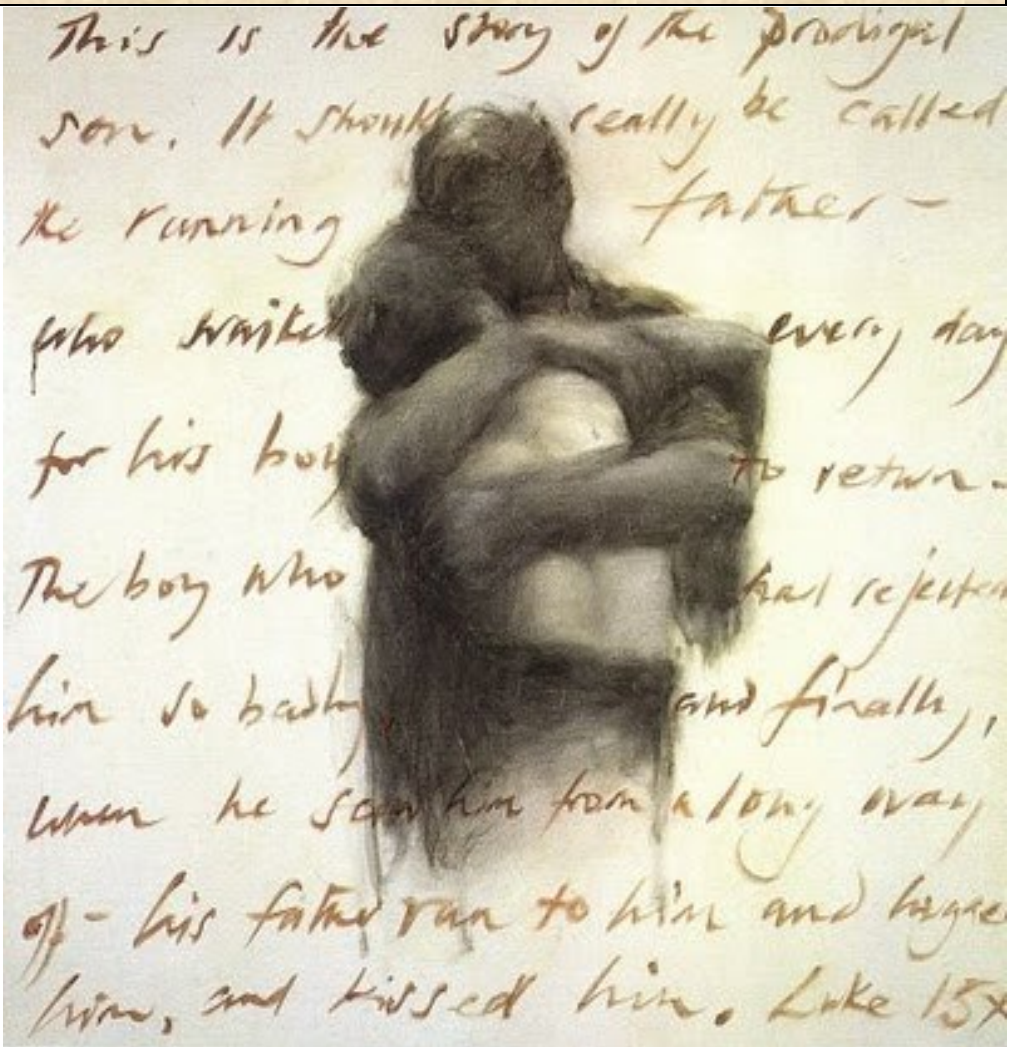 This is the story of the prodigal
son. It should really be called
the running father -
who waited every day
for his boy to return.
The boy who had rejected
him so badly, and finally,
when he saw him from a long way
off - his father ran to him and hugged
him, and kissed him. Luke 15